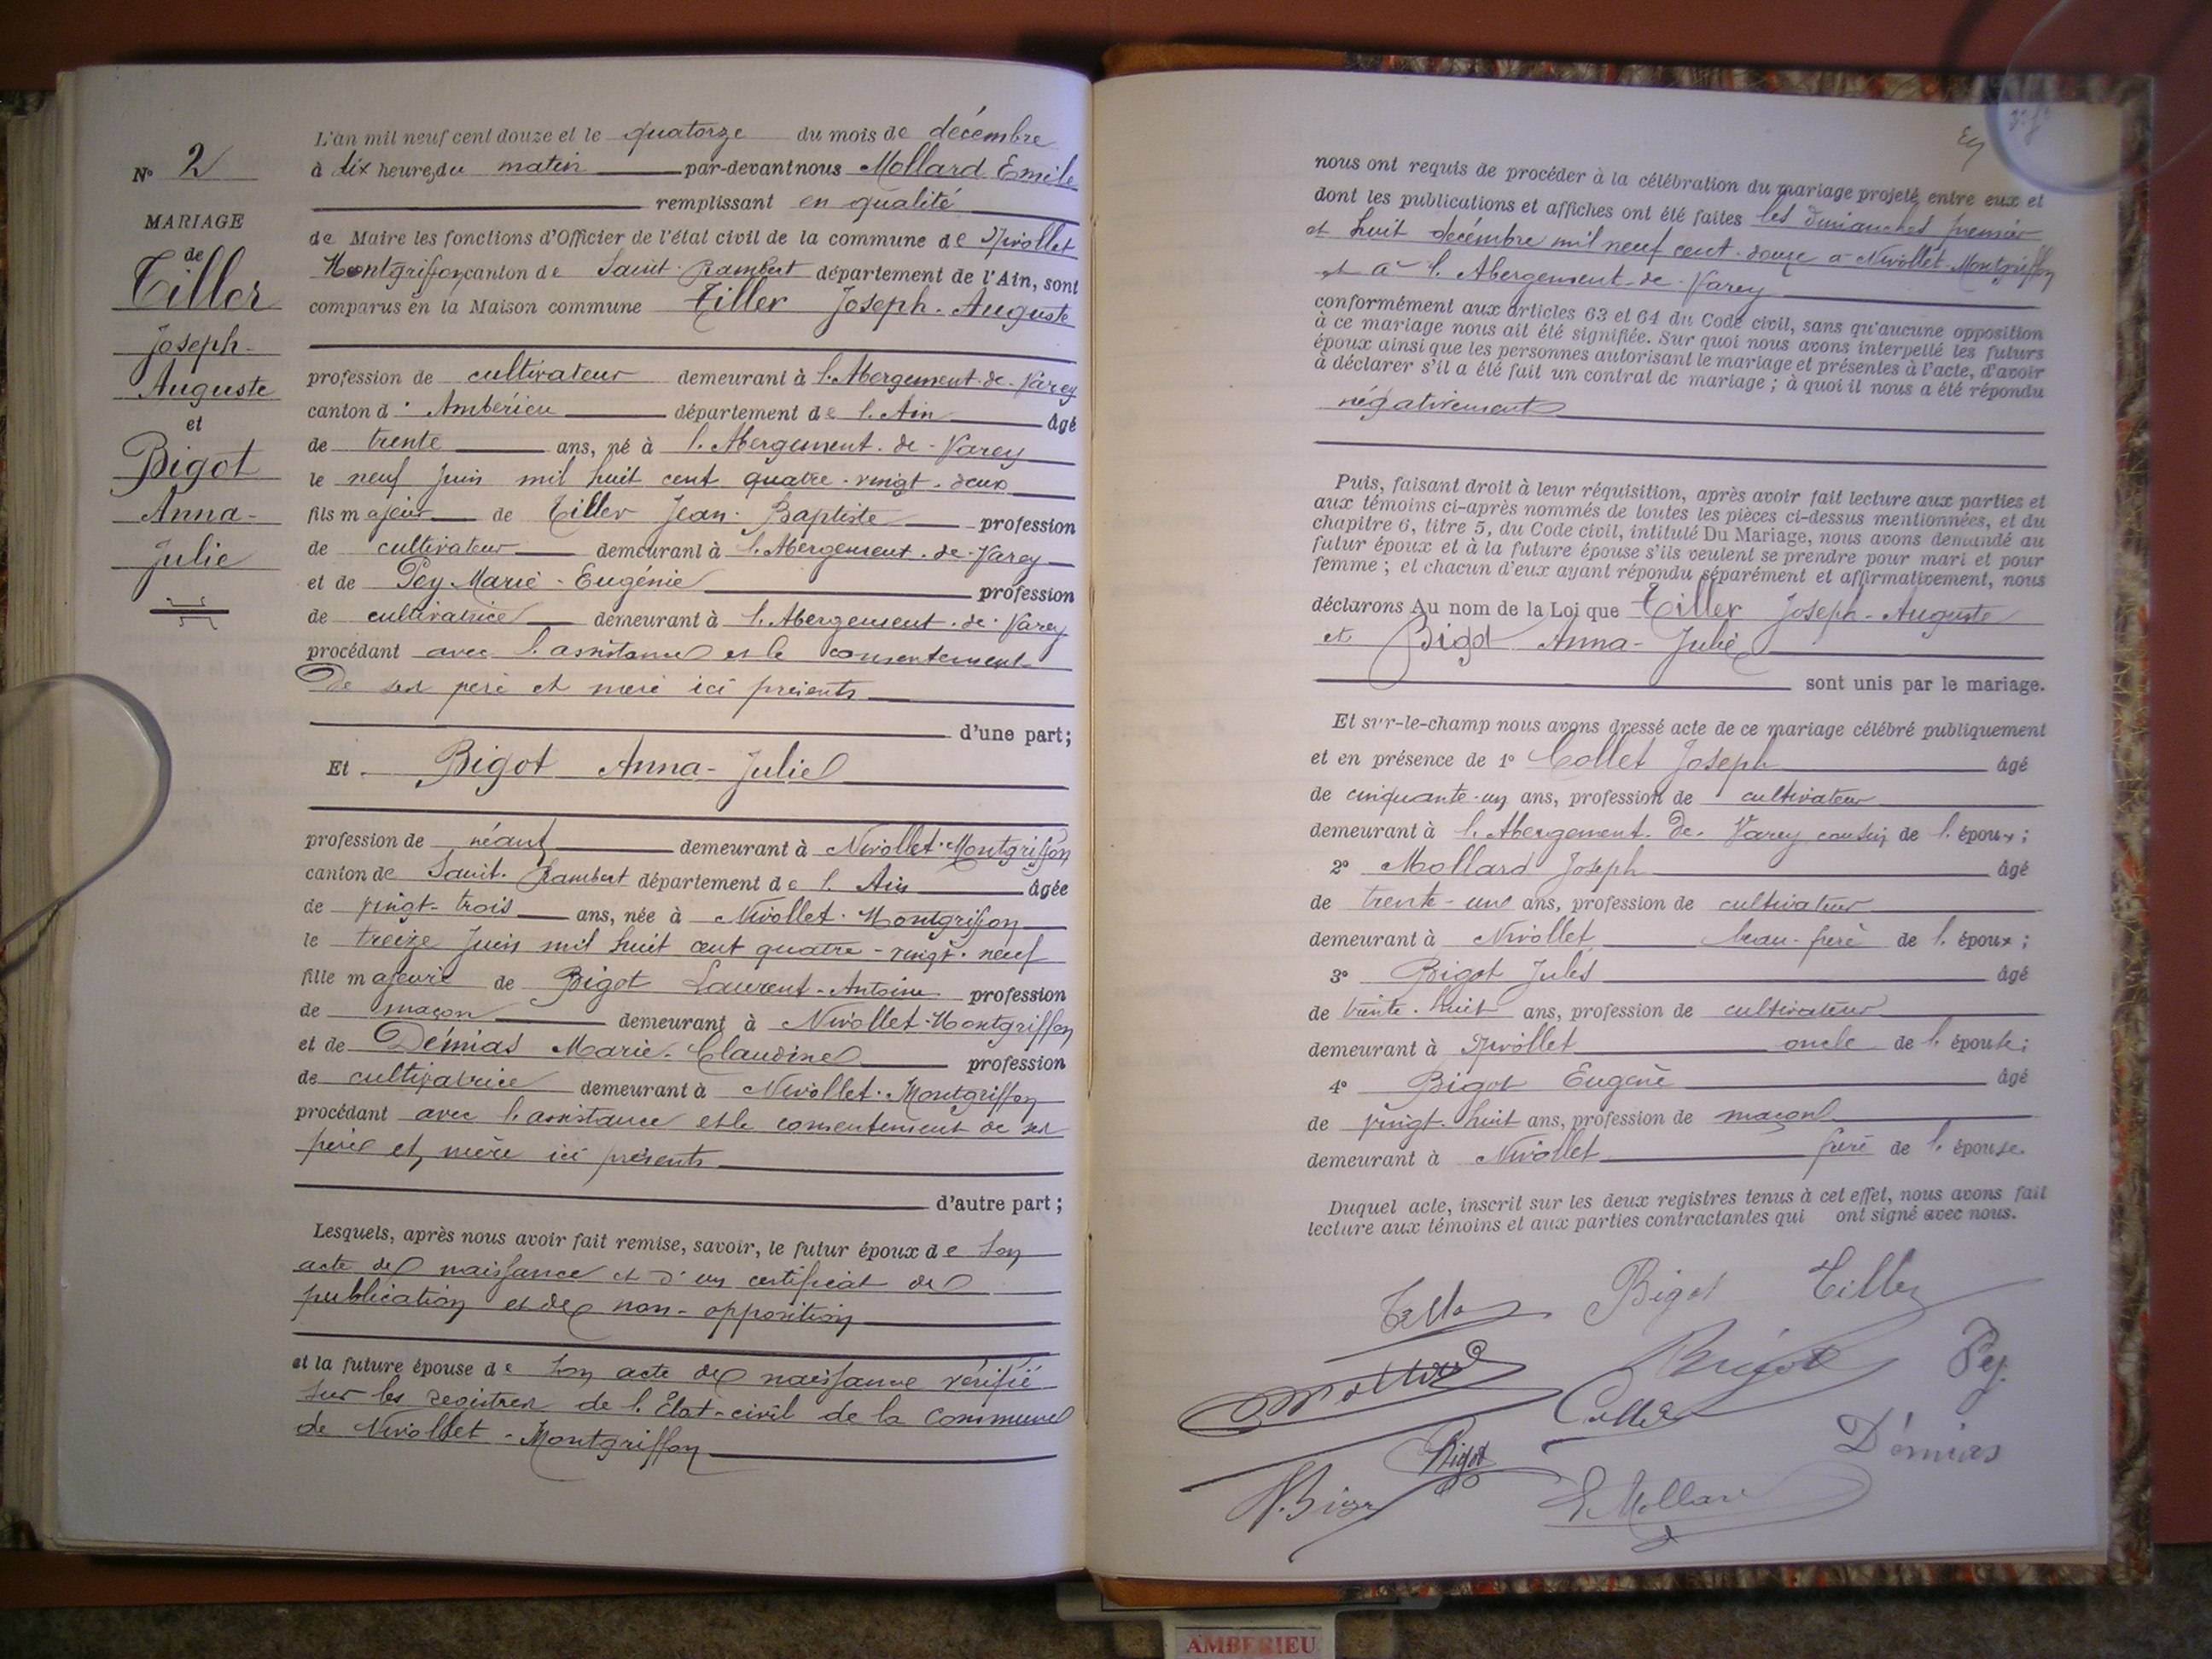 N° 2
MARIAGE
de
Tiller
Joseph-
Auguste
et
Bigot
Anna-
Julie
L'an mil neuf cent douze et le quatorze du mois de décembre
à dix heures du matin par-devant nous Mollard Emile
remplissant en qualité
de Maire les fonctions d'Officier de l'état civil de la commune de Nivollet
Montgriffon canton de Saint-Rambert département de l'Ain, sont
comparus en la Maison commune Tiller Joseph-Auguste
profession de cultivateur demeurant à l'Abergement-de-Varey
canton d'Ambérieu département de l'Ain âgé
de trente ans, né à l'Abergement-de-Varey
le neuf Juin mil huit cent quatre-vingt-deux
fils majeur de Tiller Jean-Baptiste profession
de cultivateur demeurant à l'Abergement-de-Varey
et de Pey Marie-Eugénie profession
de cultivatrice demeurant à l'Abergement-de-Varey
procédant avec l'assistance et le consentement
De ses père et mère ici présents
d'une part;
Et Bigot Anna-Julie
profession de néant demeurant à Nivollet-Montgriffon
canton de Saint-Rambert département de l'Ain âgée
de vingt-trois ans, née à Nivollet-Montgriffon
le treize Juin mil huit cent quatre-vingt-neuf
fille majeure de Bigot Laurent-Antoine profession
de maçon demeurant à Nivollet-Montgriffon
et de Démias Marie-Claudine profession
de cultivatrice demeurant à Nivollet-Montgriffon
procédant avec l'assistance et le consentement de ses
père et mère ici présents
d'autre part;
Lesquels, après nous avoir fait remise, savoir, le futur époux de son
acte de naissance et d'un certificat de
publication et de non-opposition
et la future épouse de son acte de naissance vérifié
sur les registres de l'Etat-civil de la commune
de Nivollet-Montgriffon
nous ont requis de procéder à la célébration du mariage projeté entre eux et
dont les publications et affiches ont été faites les dimanches premier
et huit décembre mil neuf cent-douze à Nivollet-Montgriffon
et à l'Abergement-de-Varey
conformément aux articles 63 et 64 du Code civil, sans qu'aucune opposition
à ce mariage nous ait été signifiée. Sur quoi nous avons interpellé les futurs
époux ainsi que les personnes autorisant le mariage et présentes à l'acte, d'avoir
à déclarer s'il a été fait un contrat de mariage; à quoi il nous a été répondu
négativement
Puis, faisant droit à leur réquisition, après avoir fait lecture aux parties et
aux témoins ci-après nommés de toutes les pièces ci-dessus mentionnées, et du
chapitre 6, titre 5, du Code civil, intitulé Du Mariage, nous avons demandé au
futur époux et à la future épouse s'ils veulent se prendre pour mari et pour
femme; et chacun d'eux ayant répondu séparément et affirmativement, nous
déclarons Au nom de la Loi que Tiller Joseph-Auguste
et Bigot Anna-Julie
sont unis par le mariage.
Et sur-le-champ nous avons dressé acte de ce mariage célébré publiquement
et en présence de 1° Collet Joseph âgé
de cinquante-un ans, profession de cultivateur
demeurant à l'Abergement-de-Varey cousin de l'époux;
2° Mollard Joseph âgé
de trente-un ans, profession de cultivateur
demeurant à Nivollet beau-frère de l'époux;
3° Bigot Jules âgé
de trente-huit ans, profession de cultivateur
demeurant à Nivollet oncle de l'épouse;
4° Bigot Eugène âgé
de vingt-huit ans, profession de maçon
demeurant à Nivollet frère de l'épouse.
Duquel acte, inscrit sur les deux registres tenus à cet effet, nous avons fait
lecture aux témoins et aux parties contractantes qui ont signé avec nous.
Bigot Tiller
Mollard Bigot Pey
Collet
Bigot Démias
E Mollard
AMBERIEU